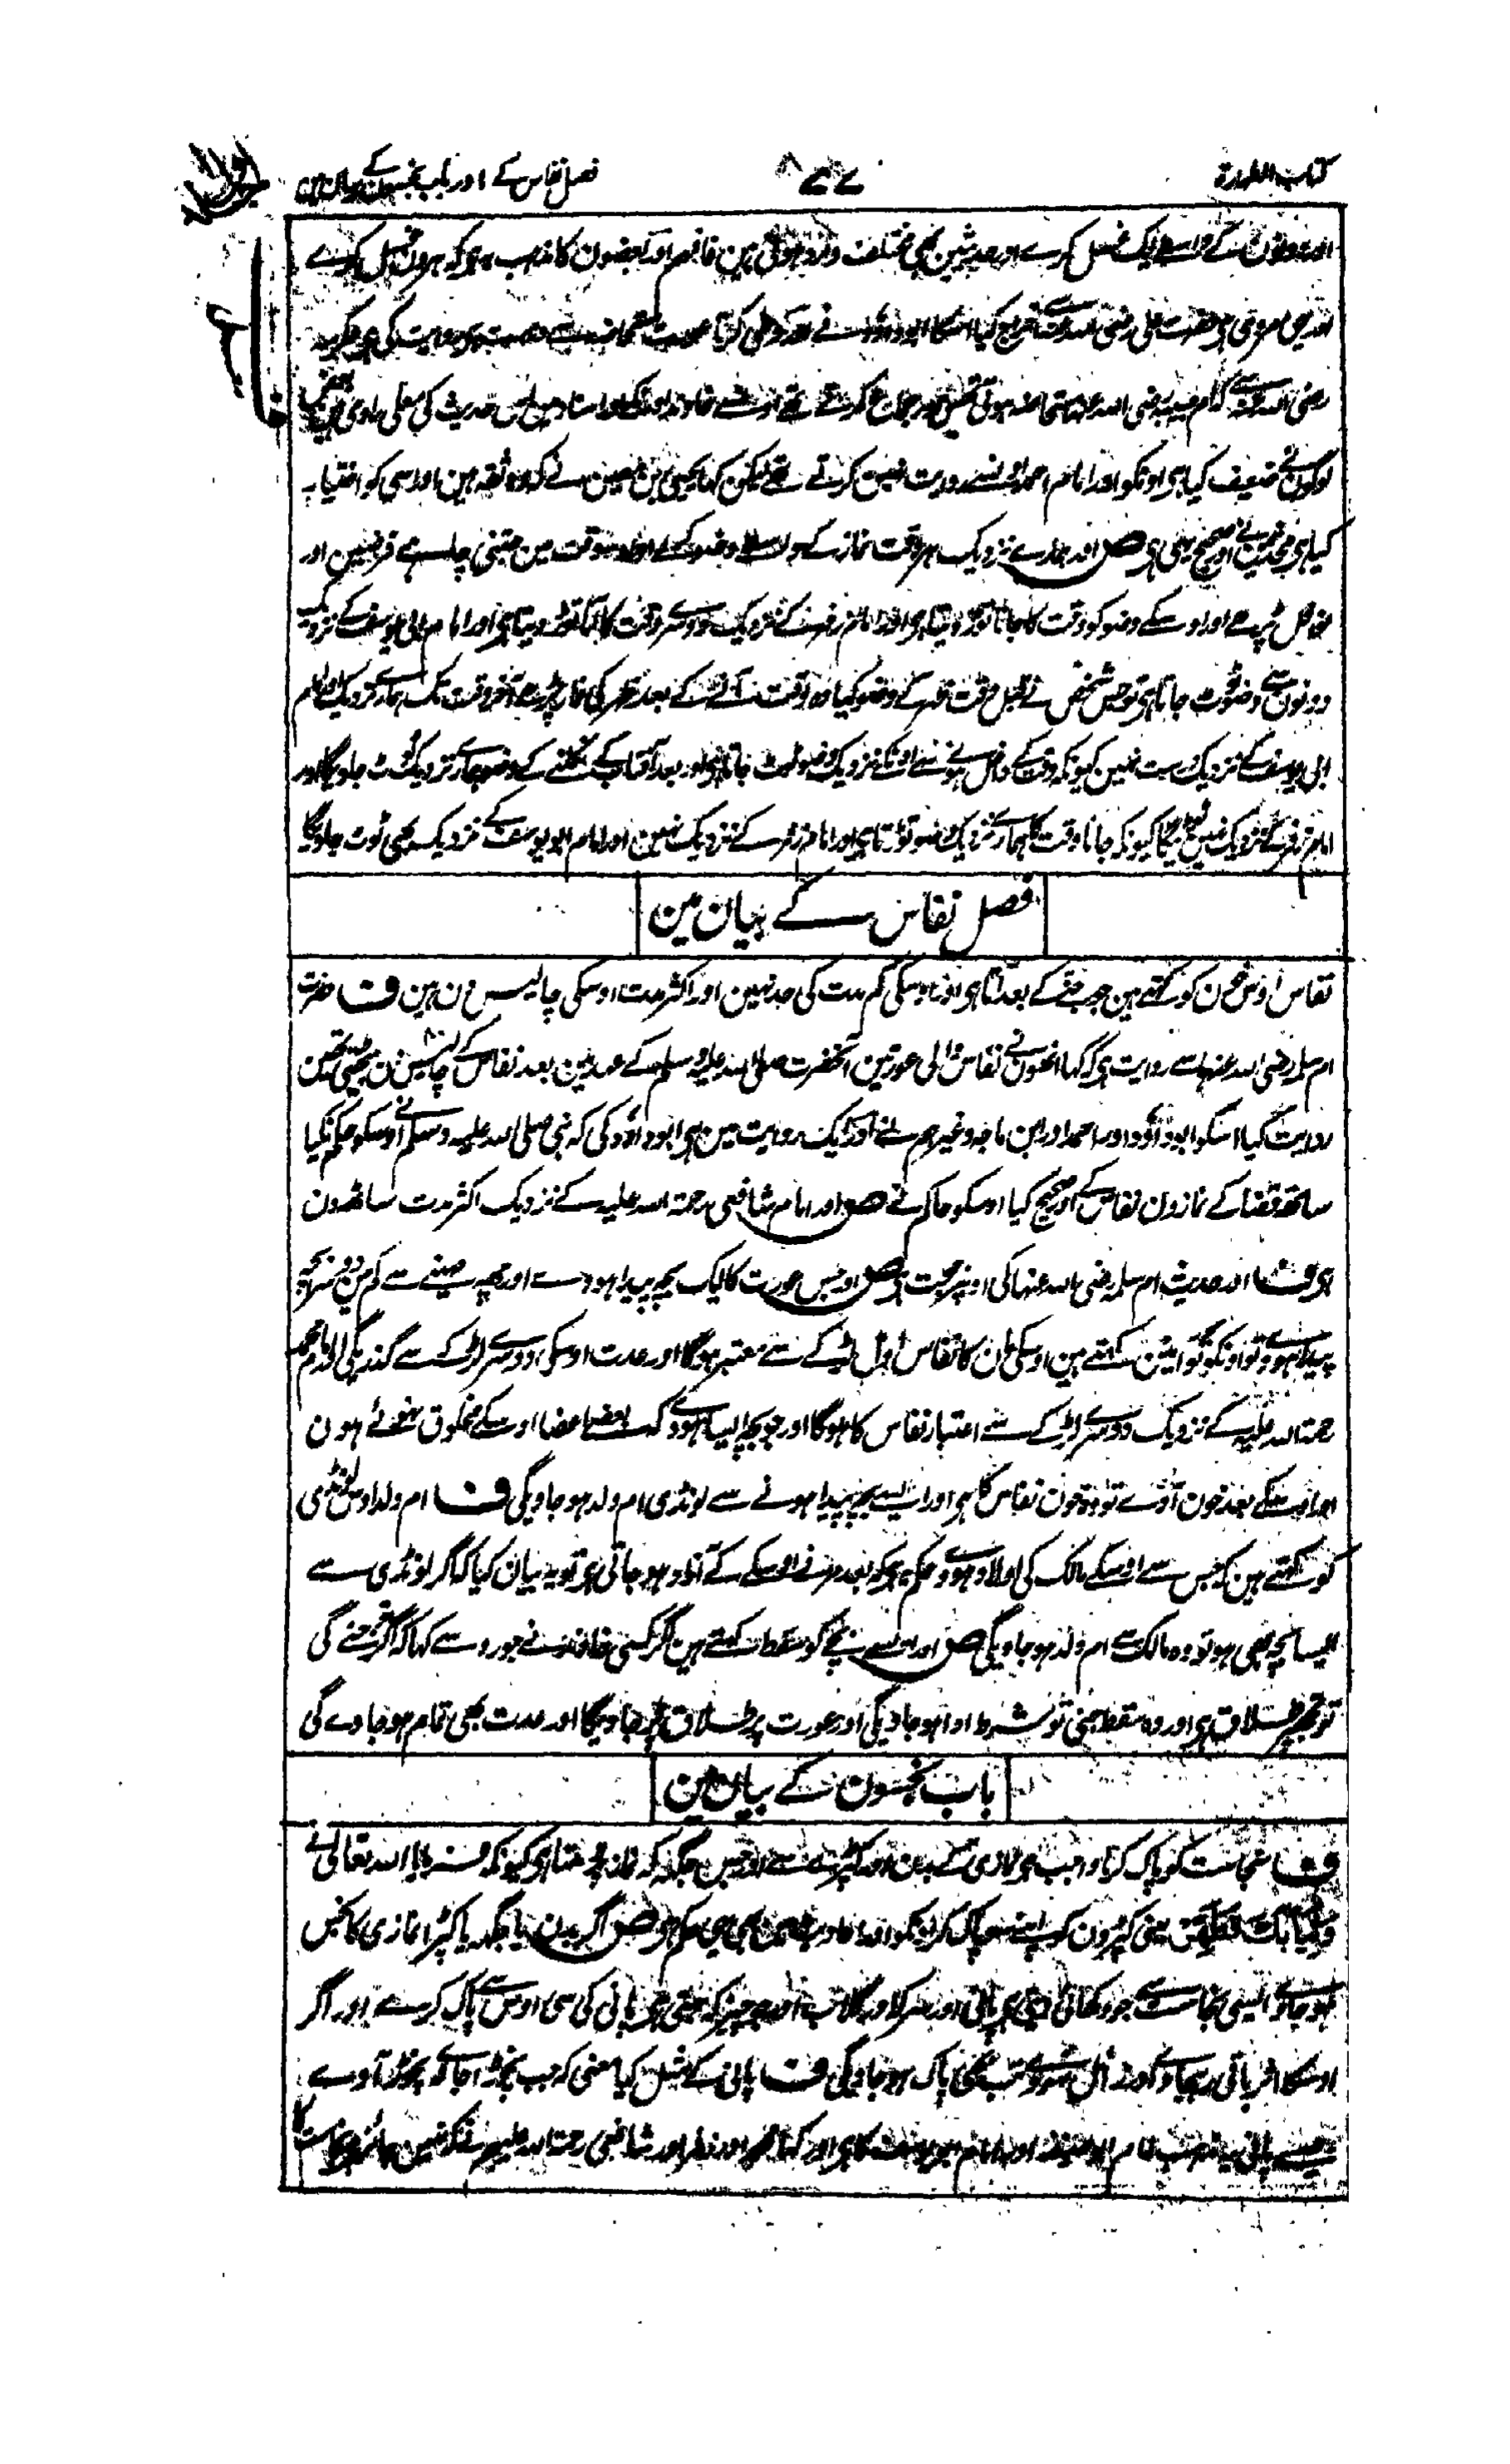 کتاب الطہارۃ
۷۷
فصل نفاس کے اور باب نجسون کے بیان مین
اور دونون کے واسطے ایک غسل کرے اور حدیثین بھی مختلف وارد ہوئی ہین فافہم اور بعضون کا مذہب یہ ہی کہ ہر دن غسل کرے
اور یہی مروی ہی حضرت علی رضی اللہ عنہ سے اخراج کیا اسکا ابو داؤد نے اور وطی کرنا مستحاضہ سے درست ہی روایت کی ہی عکرمہ
رضی اللہ عنہ سے کہ ام حبیبہ رضی اللہ عنہا مستحاضہ ہوتی تھین اور جماع کرتے تھے اونسے خاوند اونکے اور اسناد مین اس حدیث کی معلی راوی ہی بعض
لوگون نے ضعیف کیا ہی اونکو اور امام احمد اونسے روایت نہین کرتے تھے لیکن کہا یحیی بن معین نے کہ وہ ثقہ ہین اور اسی کو اختیار
کیا ہی محدثین نے اور صحیح یہی ہی ص اور ہمارے نزدیک ہر وقت نماز کے واسطے وضو کرے اور اوسوقت مین جتنی چاہے فرضین اور
نوافل پڑھے اور اوسکے وضو کو وقت کا جانا توڑ دیتا ہی اور امام زفر کے نزدیک دوسرے وقت کا آنا توڑ دیتا ہی اور امام ابی یوسف کے نزدیک
دونون سے وضو ٹوٹ جاتا ہی تو جس شخص نے قبل وقت ظہر کے وضو کیا وہ وقت آنے کے بعد ظہر کی نماز پڑھے آخر وقت تک ہمارے نزدیک اور امام
ابی یوسف کے نزدیک درست نہین کیونکہ وقت کے داخل ہونے سے اونکے نزدیک وضو ٹوٹ جاتا ہی اور بعد آفتاب کے نکلنے کے وضو ہمارے نزدیک ٹوٹ جاویگا اور
امام زفر کے نزدیک نہین ٹوٹیگا کیونکہ جانا وقت کا ہمارے نزدیک وضو توڑتا ہی اور امام زفر کے نزدیک نہین اور امام ابو یوسف کے نزدیک بھی ٹوٹ جاویگا
فصل نفاس کے بیان مین
نفاس اوس خون کو کہتے ہین جو جننے کے بعد آتا ہی اور اوسکی کم مدت کی حد نہین اور اکثر مدت اوسکی چالیس دن ہین ف حضرت
ام سلمہ رضی اللہ عنہا سے روایت ہی کہ کہا انھون نے نفاس والی عورتین آنحضرت صلی اللہ علیہ وسلم کے عہد مین بعد نفاس کے چالیس دن بیٹھتی تھین
روایت کیا اسکو ابو داؤد اور احمد اور ابن ماجہ وغیرہم نے اور ایک روایت مین ہی ابو داؤد کی کہ نبی صلی اللہ علیہ وسلم نے اوسکو حکم نکیا
ساتھ قضا کے نمازون نفاس کے اور صحیح کیا اوسکو حاکم نے ص اور امام شافعی رحمۃ اللہ علیہ کے نزدیک اکثر مدت ساٹھ دن
ہی ف اور حدیث ام سلمہ رضی اللہ عنہا کی اوپر حجت ہی ص اور جس عورت کا ایک بچہ پیدا ہووے اور چھہ مہینے سے کم مین دوسرا بچہ
پیدا ہووے تو اونکو توامین کہتے ہین اوسکی مان کا نفاس اول لڑکے سے معتبر ہوگا اور عدت اوسکی دوسرے لڑکے سے گذریگی اور امام محمد
رحمۃ اللہ علیہ کے نزدیک دوسرے لڑکے سے اعتبار نفاس کا ہوگا اور جو بچہ ایسا ہووے کہ بعضے اعضا اوسکے مخلوق ہوئے ہون
اور اوسکے بعد خون آوے تو وہ خون نفاس کا ہی اور ایسے بچہ پیدا ہونے سے لونڈی ام ولد ہوجاویگی ف ام ولد اوس لونڈی
کو کہتے ہین کہ جس سے اوسکے مالک کی اولاد ہووے حکم یہ ہی کہ بعد مرنے اوسکے کے آزاد ہو جاتی ہی تو یہ بیان کیا کہ اگر لونڈی سے
ایسا بچہ بھی ہو تو وہ مالک سے ام ولد ہو جاویگی ص اور ایسے بچے کو سقط کہتے ہین اگر کسی خاوند نے جورو سے کہا کہ اگر تو جنے گی
تو تجھپر طلاق ہی اور وہ سقط جنی تو شرط ادا ہو جاویگی اور عورت پر طلاق پڑ جاویگا اور عدت بھی تمام ہو جاوے گی
باب نجسون کے بیان مین
ف نجاست کو پاک کرنا واجب ہی نمازی کے بدن اور کپڑے سے اور جس جگہ کہ نماز پڑھتا ہی کیونکہ فرمایا اللہ تعالی نے
وَثِيَابَكَ فَطَهِّرْ یعنی کپڑون کو اپنے پاک کر اونکو اور احادیث مین بھی یہی حکم ہی ص اگر بدن یا جگہ یا کپڑا نمازی کا نجس
ہو جاوے ایسی نجاست سے جو دکھائی دیتی ہی پانی اور سرکا اور گلاب اور جو چیز کہ بہتی ہی پانی کی سی اوس سے پاک کرے اور اگر
اوسکا اثر باقی رہجاوے تب بھی پاک ہو جاویگی ف پانی کے مثل کیا معنی کہ جب نچوڑا جاے نچڑ آوے
جیسے پانی یہ مذہب امام ابو حنیفہ اور امام ابو یوسف کا ہی اور کہا محمد اور زفر اور شافعی رحمۃ اللہ علیہم نے کہ نہین جائز